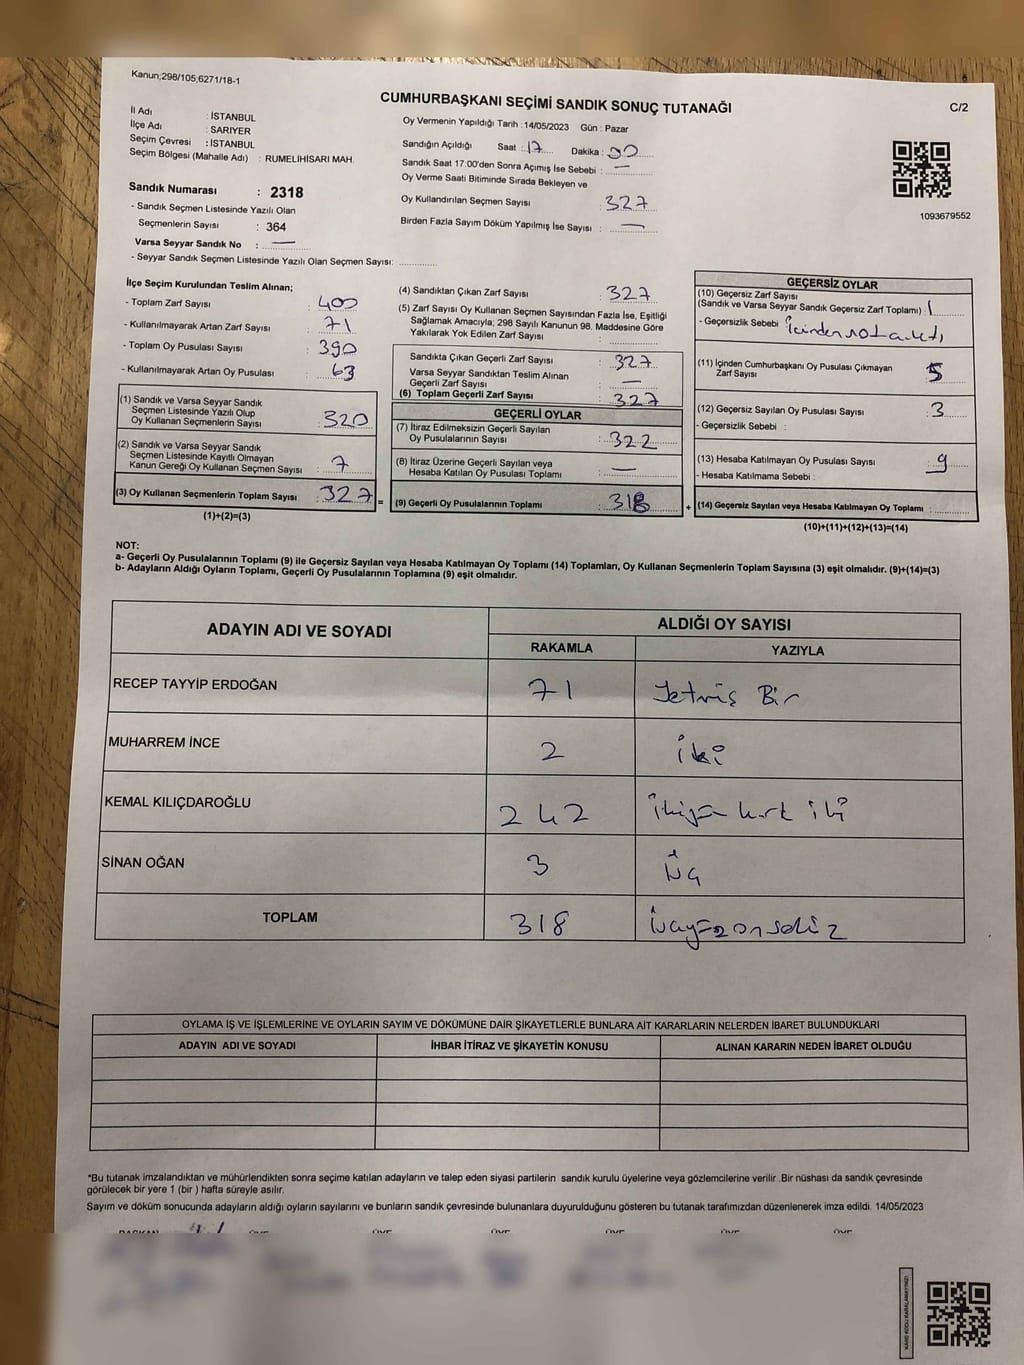 Kanun;298/105,6271/18-1
CUMHURBAŞKANI SEÇİMİ SANDIK SONUÇ TUTANAĞI
C/2
İl Adı : İSTANBUL
İlçe Adı : SARIYER
Seçim Çevresi : İSTANBUL
Seçim Bölgesi (Mahalle Adı) : RUMELİHİSARI MAH.
Sandık Numarası : 2318
- Sandık Seçmen Listesinde Yazılı Olan
Seçmenlerin Sayısı : 364
Varsa Seyyar Sandık No : —
- Seyyar Sandık Seçmen Listesinde Yazılı Olan Seçmen Sayısı:
Oy Vermenin Yapıldığı Tarih :14/05/2023 Gün : Pazar
Sandığın Açıldığı Saat : 17 Dakika :
Sandık Saat 17.00'den Sonra Açımış İse Sebebi : —
Oy Verme Saati Bitiminde Sırada Bekleyen ve
Oy Kullandırılan Seçmen Sayısı : 327
Birden Fazla Sayım Döküm Yapılmış İse Sayısı : —
1093679552
İlçe Seçim Kurulundan Teslim Alınan;
- Toplam Zarf Sayısı : 400
- Kullanılmayarak Artan Zarf Sayısı : 71
- Toplam Oy Pusulası Sayısı : 390
- Kullanılmayarak Artan Oy Pusulası : 63
(1) Sandık ve Varsa Seyyar Sandık
Seçmen Listesinde Yazılı Olup
Oy Kullanan Seçmenlerin Sayısı : 320
(2) Sandık ve Varsa Seyyar Sandık
Seçmen Listesinde Kayıtlı Olmayan
Kanun Gereği Oy Kullanan Seçmen Sayısı : 7
(3) Oy Kullanan Seçmenlerin Toplam Sayısı : 327 =
(1)+(2)=(3)
(4) Sandıktan Çıkan Zarf Sayısı : 327
(5) Zarf Sayısı Oy Kullanan Seçmen Sayısından Fazla İse, Eşitliği
Sağlamak Amacıyla, 298 Sayılı Kanunun 98. Maddesine Göre
Yakılarak Yok Edilen Zarf Sayısı :
Sandıkta Çıkan Geçerli Zarf Sayısı : 327
Varsa Seyyar Sandıktan Teslim Alınan
Geçerli Zarf Sayısı : —
(6) Toplam Geçerli Zarf Sayısı : 327
GEÇERLİ OYLAR
(7) İtiraz Edilmeksizin Geçerli Sayılan
Oy Pusulalarının Sayısı : 322
(8) İtiraz Üzerine Geçerli Sayılan veya
Hesaba Katılan Oy Pusulası Toplamı : —
(9) Geçerli Oy Pusulalarının Toplamı : 318 +
GEÇERSİZ OYLAR
(10) Geçersiz Zarf Sayısı
(Sandık ve Varsa Seyyar Sandık Geçersiz Zarf Toplamı) : 1
- Geçersizlik Sebebi :
(11) İçinden Cumhurbaşkanı Oy Pusulası Çıkmayan
Zarf Sayısı : 5
(12) Geçersiz Sayılan Oy Pusulası Sayısı : 3
- Geçersizlik Sebebi :
(13) Hesaba Katılmayan Oy Pusulası Sayısı : 9
- Hesaba Katılmama Sebebi :
(14) Geçersiz Sayılan veya Hesaba Katılmayan Oy Toplamı :
(10)+(11)+(12)+(13)=(14)
NOT:
a- Geçerli Oy Pusulalarının Toplamı (9) ile Geçersiz Sayılan veya Hesaba Katılmayan Oy Toplamı (14) Toplamları, Oy Kullanan Seçmenlerin Toplam Sayısına (3) eşit olmalıdır. (9)+(14)=(3)
b- Adayların Aldığı Oyların Toplamı, Geçerli Oy Pusulalarının Toplamına (9) eşit olmalıdır.
ADAYIN ADI VE SOYADI
ALDIĞI OY SAYISI
RAKAMLA YAZIYLA
RECEP TAYYİP ERDOĞAN 71 Yetmiş Bir
MUHARREM İNCE 2 iki
KEMAL KILIÇDAROĞLU 242 ikiyüz kırk iki
SİNAN OĞAN 3 üç
TOPLAM 318 üçyüzonsekiz
OYLAMA İŞ VE İŞLEMLERİNE VE OYLARIN SAYIM VE DÖKÜMÜNE DAİR ŞİKAYETLERLE BUNLARA AİT KARARLARIN NELERDEN İBARET BULUNDUKLARI
ADAYIN ADI VE SOYADI İHBAR İTİRAZ VE ŞİKAYETİN KONUSU ALINAN KARARIN NEDEN İBARET OLDUĞU
*Bu tutanak imzalandıktan ve mühürlendikten sonra seçime katılan adayların ve talep eden siyasi partilerin sandık kurulu üyelerine veya gözlemcilerine verilir .Bir nüshası da sandık çevresinde
görülecek bir yere 1 (bir ) hafta süreyle asılır.
Sayım ve döküm sonucunda adayların aldığı oyların sayılarını ve bunların sandık çevresinde bulunanlara duyurulduğunu gösteren bu tutanak tarafımızdan düzenlenerek imza edildi. 14/05/2023
BAŞKAN ÜYE ÜYE ÜYE ÜYE ÜYE ÜYE
KARE KODU KARALAMAYINIZ!